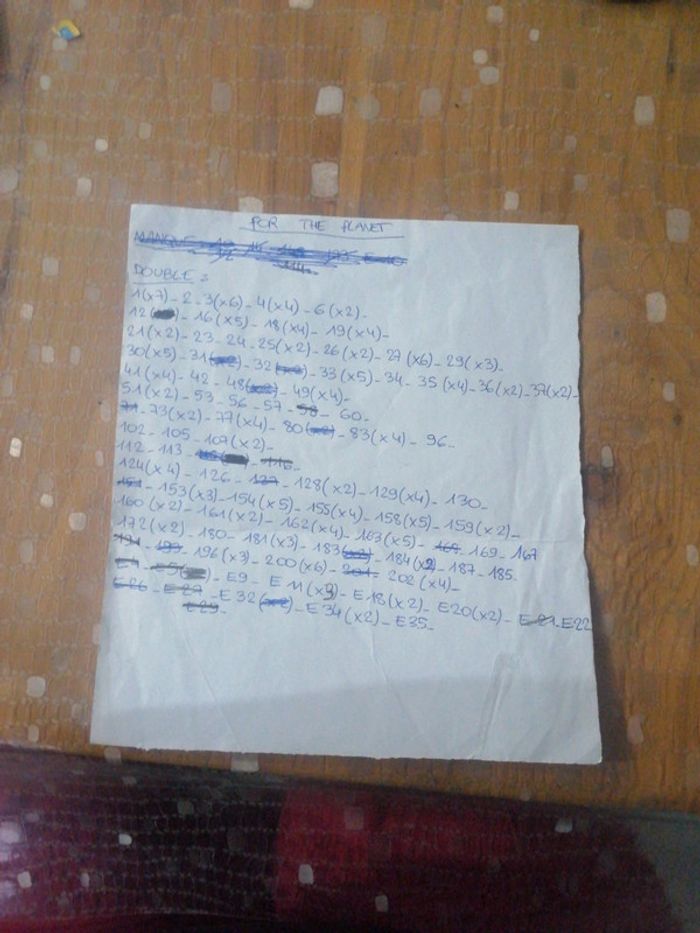 FOR THE PLANET
MANQUE
DOUBLE :
1(x7)- 2- 3(x6)- 4(x4)- 6(x2)-
12( - 16(x5)- 18(x4)- 19(x4)-
21(x2)- 23- 24- 25(x2)- 26(x2)- 27(x6)- 29(x3)-
30(x5)- 31(x2)- 32(x2)- 33(x5)- 34- 35(x4)- 36(x2)- 37(x2)-
41(x4)- 42- 48(x2)- 49(x4)-
51(x2)- 53- 56- 57- 58- 60-
71- 73(x2)- 77(x4)- 80(x2)- 83(x4)- 96-
102- 105- 107(x2)-
112- 113- 116-
124(x4)- 126- 127- 128(x2)- 129(x4)- 130-
151- 153(x3)- 154(x5)- 155(x4)- 158(x5)- 159(x2)-
160(x2)- 161(x2)- 162(x4)- 163(x5)- 169- 167
172(x2)- 180- 181(x3)- 183(x2)- 184(x2)- 187- 185-
196(x3)- 200(x6)- 201- 202(x4)-
E5( - E9- E11(x3)- E18(x2)- E20(x2)- E21- E22
E26- E27- E32(x2)- E34(x2)- E35-
E29-